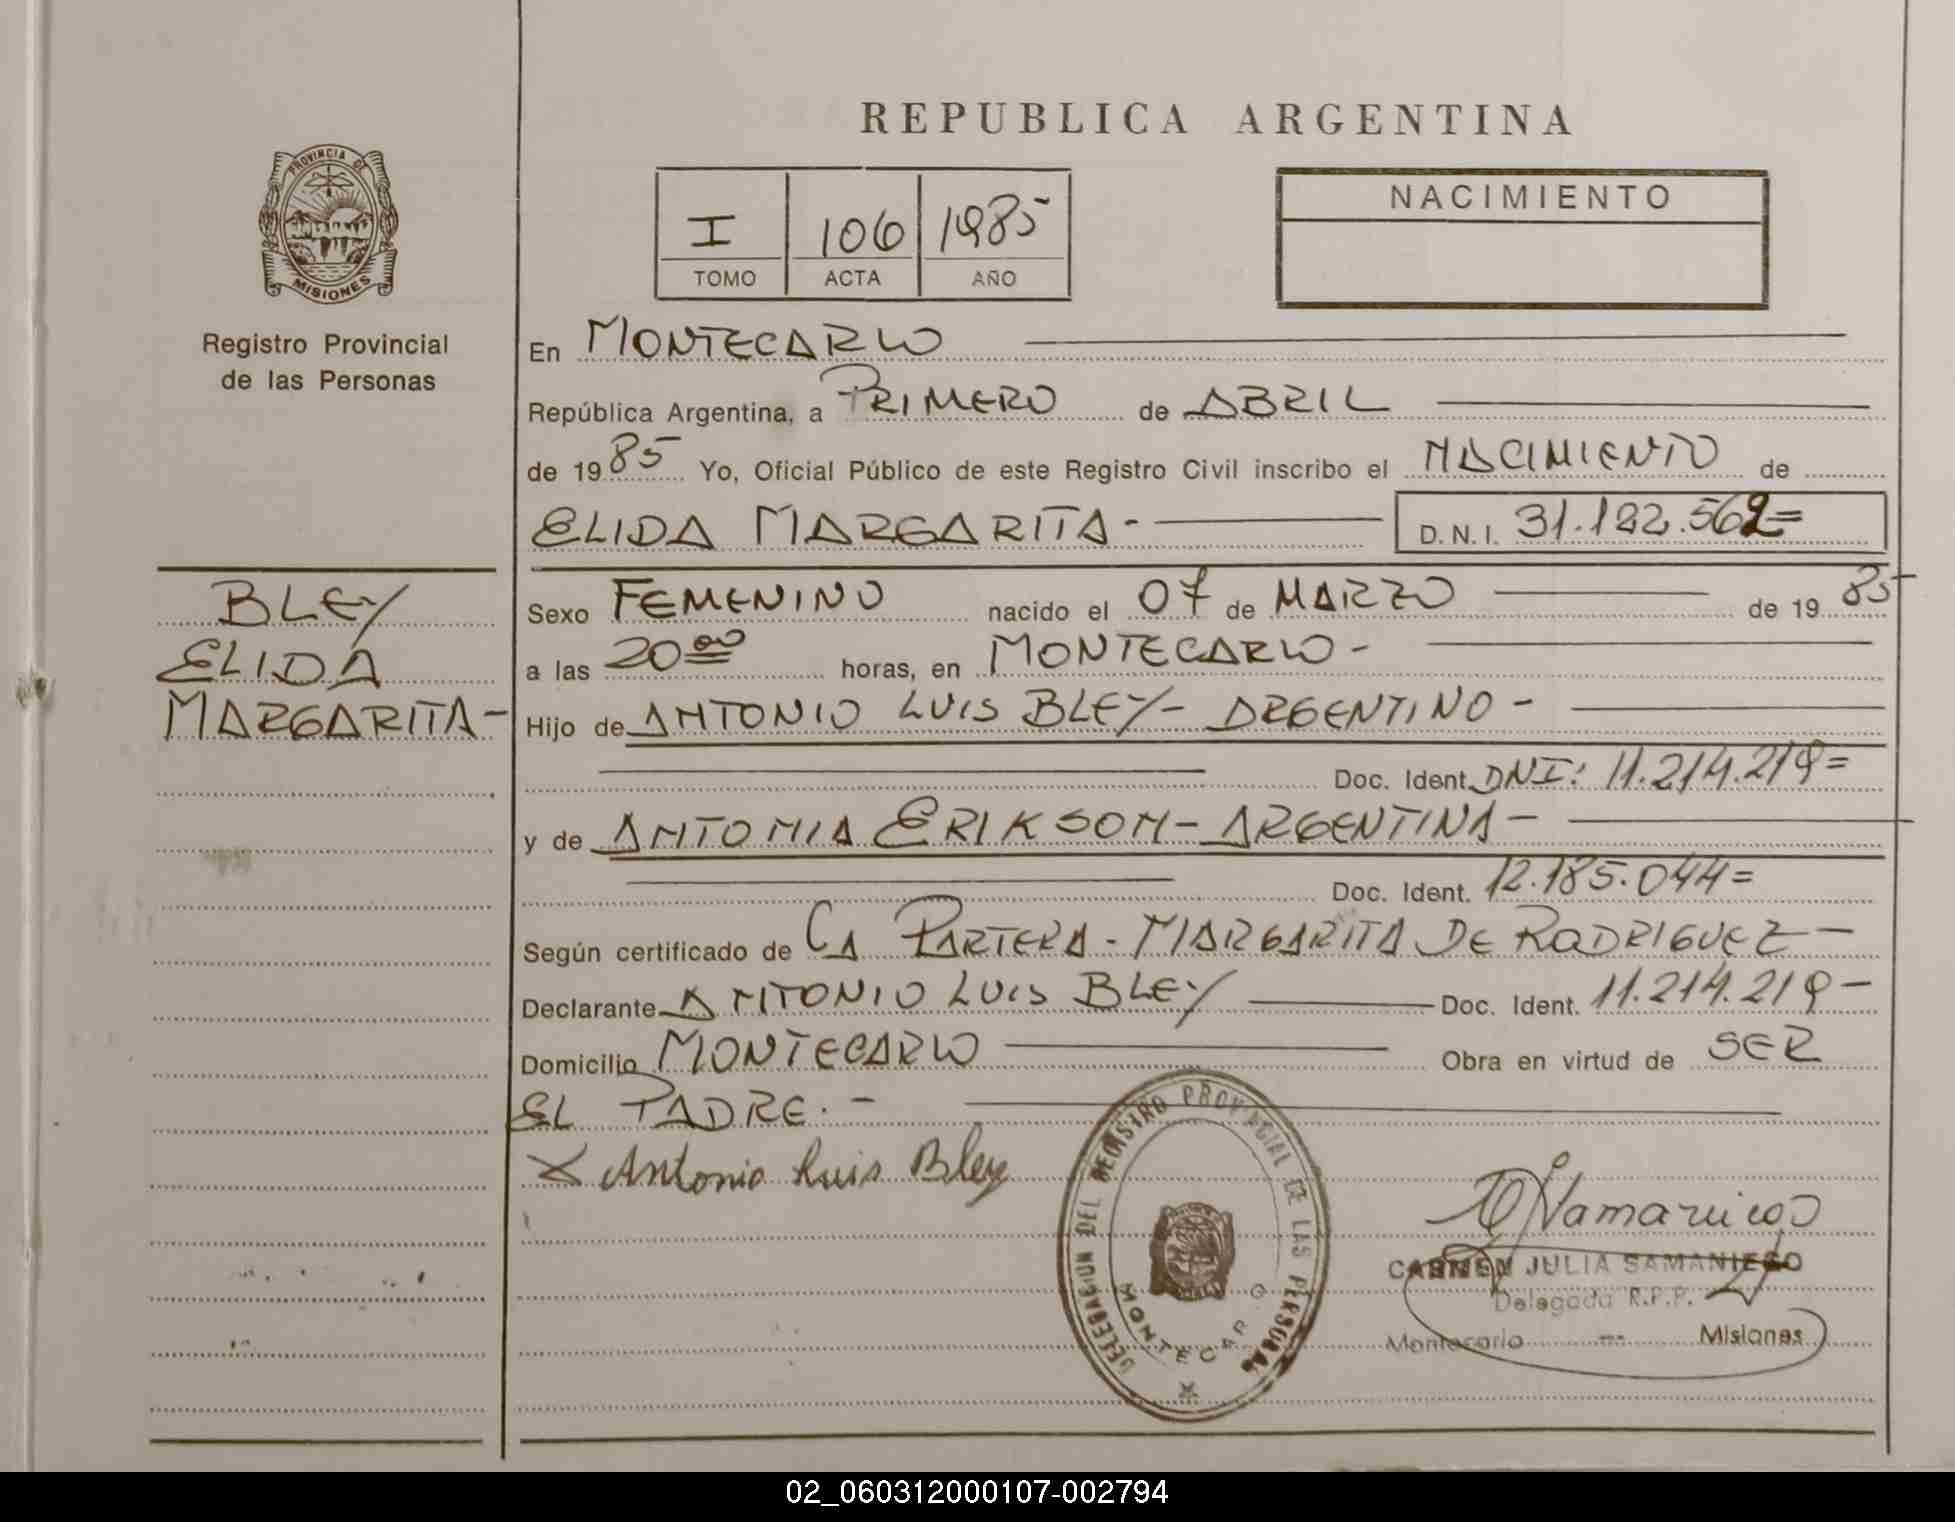 REPUBLICA ARGENTINA
PROVINCIA DE
MISIONES
Registro Provincial
de las Personas
I 106 1985
TOMO ACTA AÑO
NACIMIENTO
En MONTECARLO
República Argentina, a PRIMERO de ABRIL
de 1985 Yo, Oficial Público de este Registro Civil inscribo el NACIMIENTO de
ELIDA MARGARITA- D.N.I. 31.122.562=
BLEY
ELIDA
MARGARITA-
Sexo FEMENINO nacido el 07 de MARZO de 1985
a las 20 00 horas, en MONTECARLO-
Hijo de ANTONIO LUIS BLEY- ARGENTINO-
Doc. Ident. DNI: 11.214.219=
y de ANTONIA ERIKSON- ARGENTINA-
Doc. Ident. 12.185.044=
Según certificado de LA PARTERA- MARGARITA DE RODRIGUEZ-
Declarante ANTONIO LUIS BLEY Doc. Ident. 11.214.219-
Domicilio MONTECARLO Obra en virtud de SER
EL PADRE.-
X Antonio Luis Bley
DELEGACION DEL REGISTRO PROVINCIAL DE LAS PERSONAS
MONTECARLO
CARMEN JULIA SAMANIEGO
Delegada R.P.P.
Montecarlo -- Misiones
02_060312000107-002794